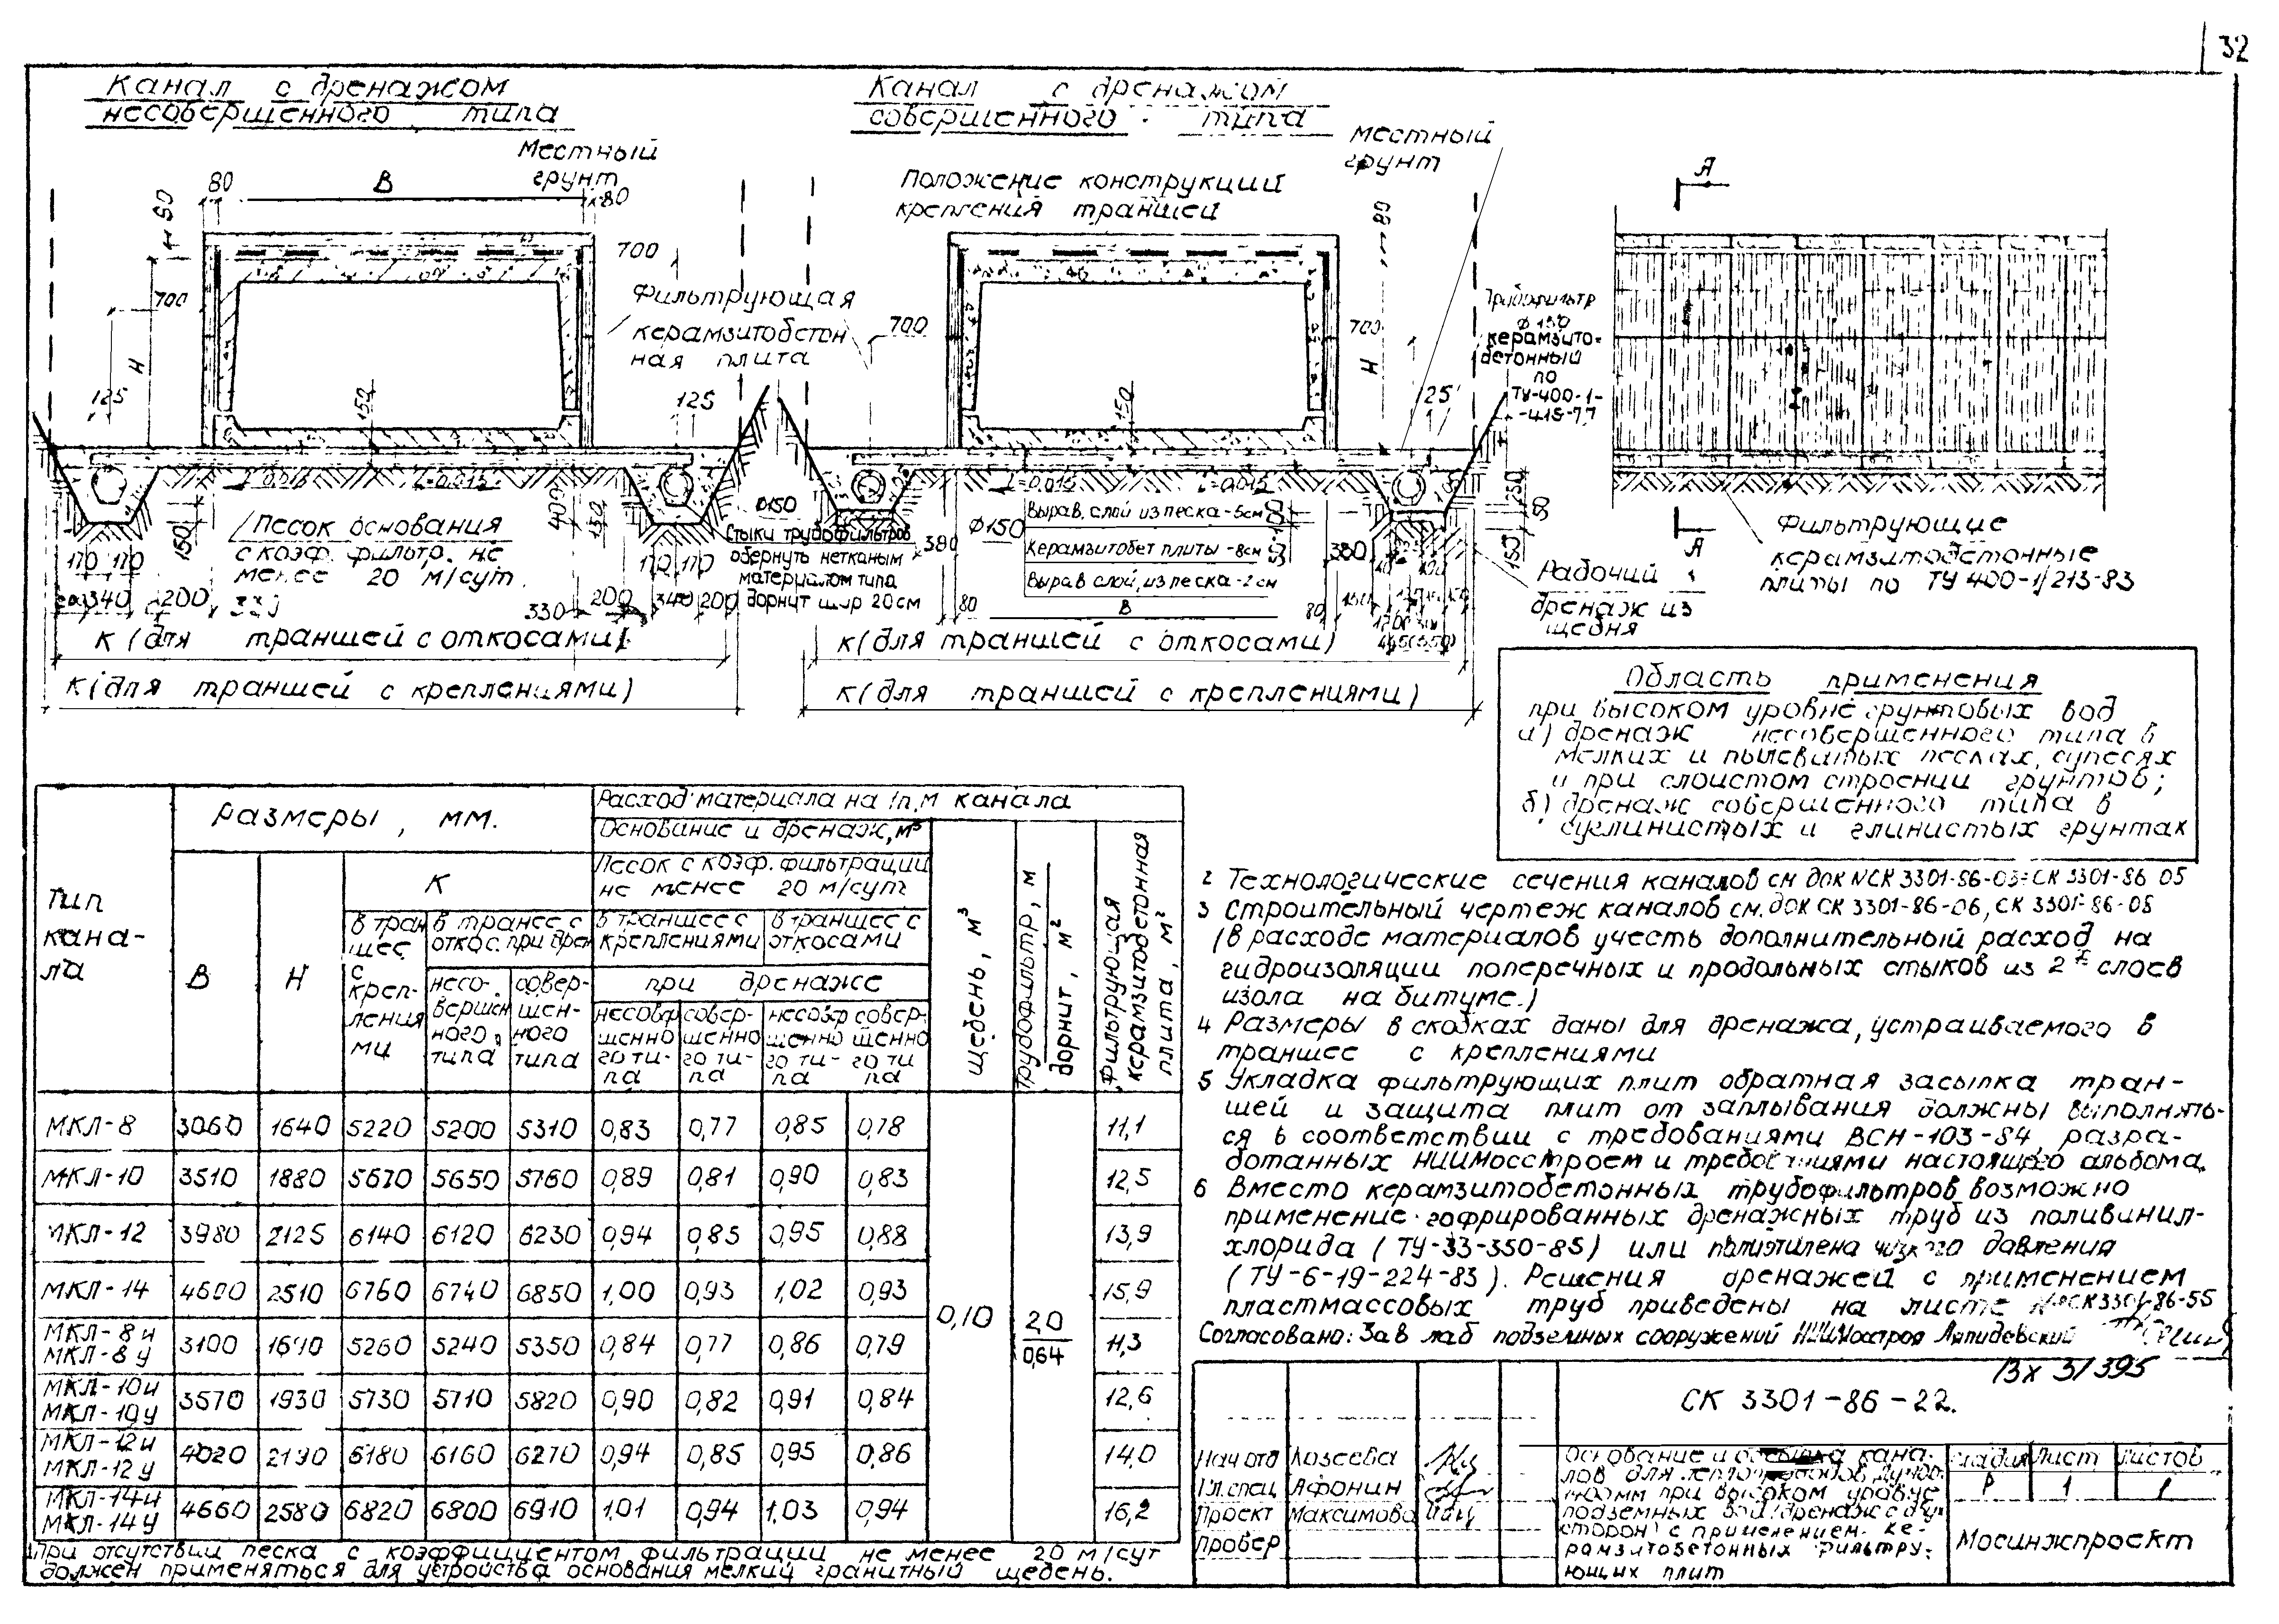 32
Канал с дренажом
несовершенного типа
Канал с дренажом
совершенного типа
Местный
грунт
Местный
грунт
Положение конструкций
крепления траншей
80
В
80
Н
80
700
Н
125
150
700
125
Фильтрующая
керамзитобетон
ная плита
700
80
700
Н
125
150
Трубофильтр
ф 150
керамзито-
бетонный
по
ТУ-400-1-
-415-77
А
А
i=0,015
i=0,015
i=0,015
Песок основания
с коэф. фильтр. не
менее 20 м/сут.
150
400
150
170 170
340
200
330
200
340
200
170 170
ф150
Стыки трубофильтров
обернуть нетканым
материалом типа
дорнит шир 20см
380
ф150
Вырав. слой из песка-5см
Керамзитобет плиты-8см
Вырав слой, из песка-2см
80
В
80
380
250
150
Рабочий
дренаж из
щебня
Фильтрующие
керамзитобетонные
плиты по ТУ 400-1/213-83
К (для траншей с откосами)
К (для траншей с креплениями)
К (для траншей с откосами)
К (для траншей с креплениями)
Область применения
при высоком уровне грунтовых вод
а) дренаж несовершенного типа в
мелких и пылеватых песках, супесях
и при слоистом строении грунтов;
б) дренаж совершенного типа в
суглинистых и глинистых грунтах
Тип
кана-
ла
Размеры, мм.
В
Н
К
в тран
шее
с
креп-
ления
ми
в траншее с
откос. при дрен
несо-
вершен
ного
типа
совер-
шен-
ного
типа
Расход материала на 1п.м канала
Основание и дренаж, м³
Песок с коэф. фильтрации
не менее 20 м/сут.
в траншее с
креплениями
в траншее с
откосами
при дренаже
несовер
шенно
го ти-
па
совер-
шенно
го ти-
па
несовер
шенно
го ти-
па
совер-
шенно
го ти
па
щебень, м³
Трубофильтр, м
дорнит, м²
Фильтрующая
керамзитобетонная
плита, м²
МКЛ-8 3060 1640 5220 5200 5310 0,83 0,77 0,85 0,78 11,1
МКЛ-10 3510 1880 5670 5650 5760 0,89 0,81 0,90 0,83 12,5
МКЛ-12 3980 2125 6140 6120 6230 0,94 0,85 0,95 0,88 13,9
МКЛ-14 4600 2510 6760 6740 6850 1,00 0,93 1,02 0,93 15,9
МКЛ-8и
МКЛ-8у 3100 1690 5260 5240 5350 0,84 0,77 0,86 0,79 11,3
0,10
2,0
0,64
МКЛ-10и
МКЛ-10у 3570 1930 5730 5710 5820 0,90 0,82 0,91 0,84 12,6
МКЛ-12и
МКЛ-12у 4020 2190 6180 6160 6270 0,94 0,85 0,95 0,86 14,0
МКЛ-14и
МКЛ-14у 4660 2580 6820 6800 6910 1,01 0,94 1,03 0,94 16,2
1 При отсутствии песка с коэффициентом фильтрации не менее 20 м/сут
должен применяться для устройства основания мелкий гранитный щебень.
2 Технологические сечения каналов см док СК 3301-86-05
3 Строительный чертеж каналов см. док СК 3301-86-06, СК 3301-86-08
(в расходе материалов учесть дополнительный расход на
гидроизоляции поперечных и продольных стыков из 2х слоев
изола на битуме.)
4 Размеры в скобках даны для дренажа, устраиваемого в
траншее с креплениями
5 Укладка фильтрующих плит обратная засыпка тран-
шей и защита плит от заплывания должны выполнять-
ся в соответствии с требованиями ВСН-103-84, разра-
ботанных НИИмосстроем и требованиями настоящего альбома.
6 Вместо керамзитобетонных трубофильтров возможно
применение гофрированных дренажных труб из поливинил-
хлорида (ТУ-33-350-85) или полиэтилена низкого давления
(ТУ-6-19-224-83). Решения дренажей с применением
пластмассовых труб приведены на листе СК3301-86-55
Согласовано: Зав лаб подземных сооружений НИИМосстроя Ляпидевский
Вх 31395
СК 3301-86-22.
Нач отд Козеева
Гл. спец Афонин
Проект Максимова
Провер
Основание и обсыпка кана-
лов для теплопроводов
при высоком уровне
подземных вод (дренаж с двух
сторон) с применением ке-
рамзитобетонных фильтру-
ющих плит
Стадия Лист Листов
Р 1 1
Мосинжпроект